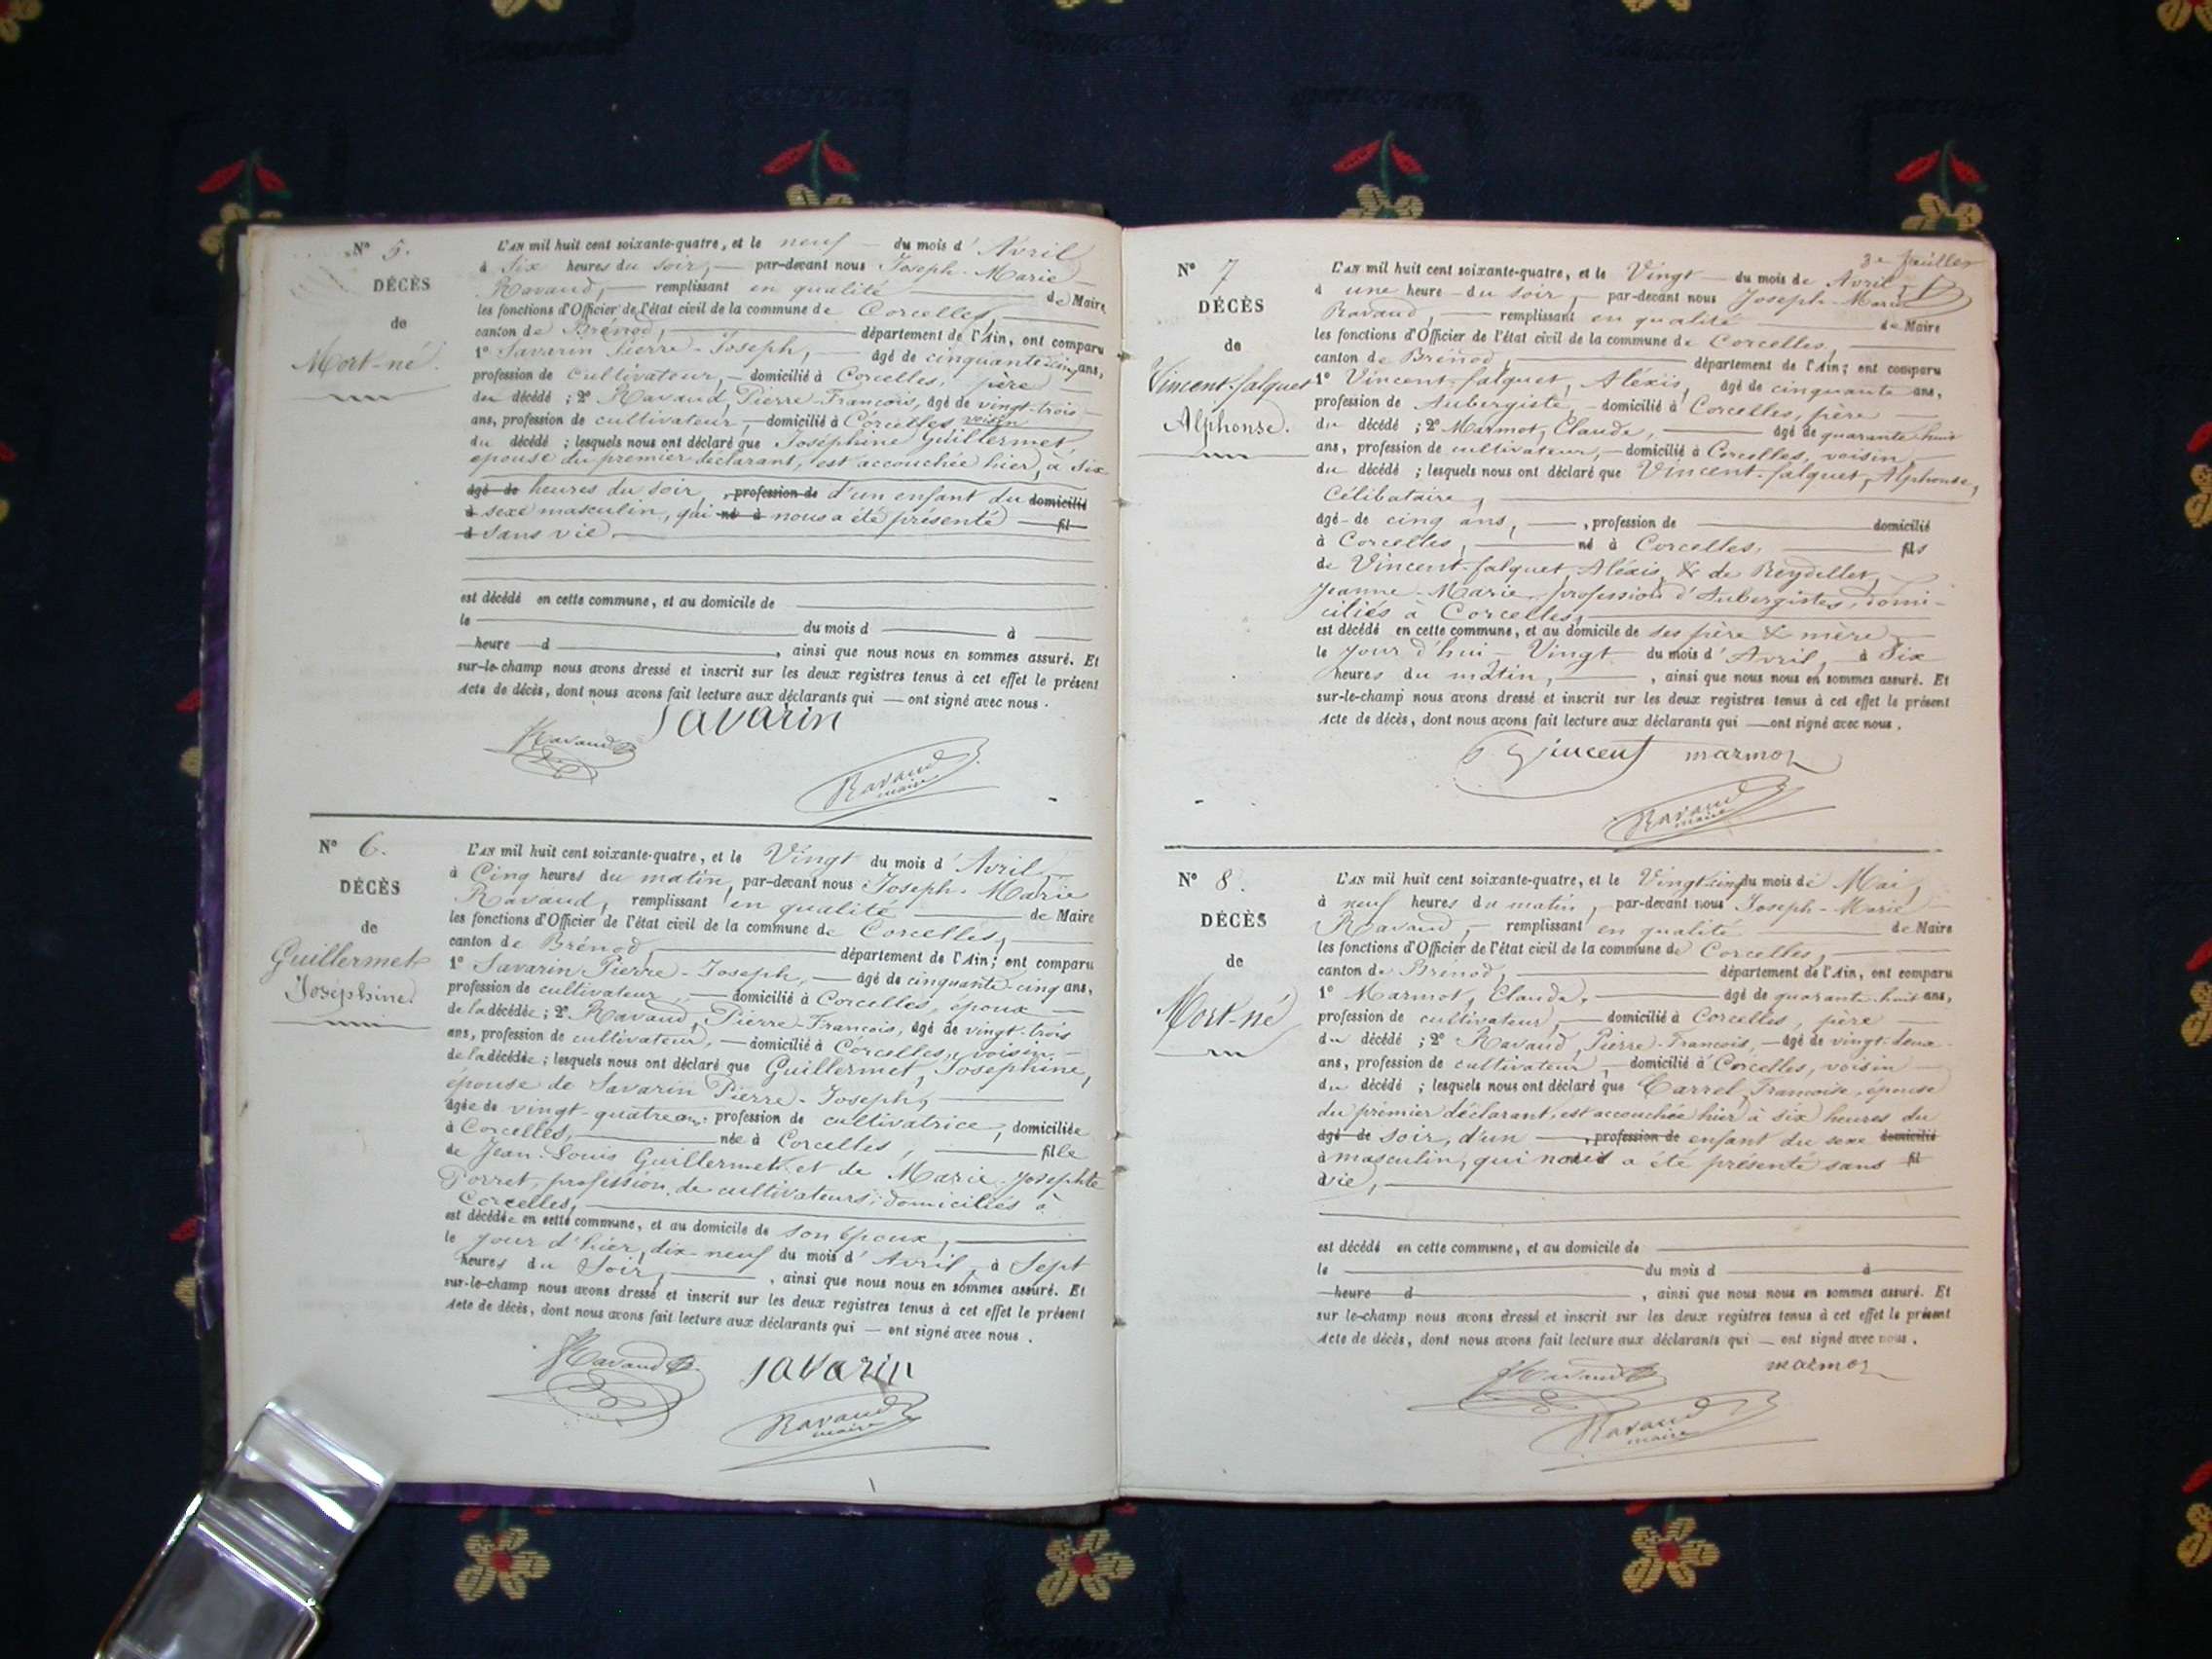 N° 5.
DÉCÈS
de
Mort-né.
L'AN mil huit cent soixante-quatre, et le neuf du mois d'Avril
à Six heures du soir, par-devant nous Joseph-Marie
Ravaud, remplissant en qualité de Maire
les fonctions d'Officier de l'état civil de la commune de Corcelles,
canton de Brénod, département de l'Ain, ont comparu
1° Savarin Pierre-Joseph, âgé de cinquante-cinq ans,
profession de cultivateur, domicilié à Corcelles, père
du décédé ; 2° Ravaud Pierre-François, âgé de vingt-trois
ans, profession de cultivateur, domicilié à Corcelles, voisin
du décédé ; lesquels nous ont déclaré que Joséphine Guillermet
épouse du premier déclarant, est accouchée hier, à six
âgé de heures du soir, , profession de d'un enfant du domicilié
à sexe masculin, qui né à nous a été présenté fil
d sans vie.
est décédé en cette commune, et au domicile de
le du mois d à
heure d , ainsi que nous nous en sommes assuré. Et
sur-le-champ nous avons dressé et inscrit sur les deux registres tenus à cet effet le présent
Acte de décès, dont nous avons fait lecture aux déclarants qui ont signé avec nous.
Savarin
Ravaud
Ravaud
maire
N° 6.
DÉCÈS
de
Guillermet
Joséphine.
L'AN mil huit cent soixante-quatre, et le Vingt du mois d'Avril,
à Cinq heures du matin, par-devant nous Joseph-Marie
Ravaud, remplissant en qualité de Maire
les fonctions d'Officier de l'état civil de la commune de Corcelles,
canton de Brénod, département de l'Ain ; ont comparu
1° Savarin Pierre-Joseph, âgé de cinquante-cinq ans,
profession de cultivateur, domicilié à Corcelles, époux
de la décédée ; 2° Ravaud, Pierre-François, âgé de vingt-trois
ans, profession de cultivateur, domicilié à Corcelles, voisin
de la décédée ; lesquels nous ont déclaré que Guillermet, Joséphine,
épouse de Savarin Pierre-Joseph,
âgée de vingt-quatre ans, profession de cultivatrice, domiciliée
à Corcelles, née à Corcelles, fille
de Jean-Louis Guillermet et de Marie-Josephte
Porret, profession de cultivateurs, domiciliés à
Corcelles,
est décédée en cette commune, et au domicile de son époux,
le jour d'hier, dix-neuf du mois d'Avril, à Sept
heures du Soir, , ainsi que nous nous en sommes assuré. Et
sur-le-champ nous avons dressé et inscrit sur les deux registres tenus à cet effet le présent
Acte de décès, dont nous avons fait lecture aux déclarants qui ont signé avec nous.
Ravaud Savarin
Ravaud
maire
3e feuillet
N° 7
DÉCÈS
de
Vincent-falquet
Alphonse.
L'AN mil huit cent soixante-quatre, et le Vingt du mois de Avril,
à une heure du soir, par-devant nous Joseph-Marie
Ravaud, remplissant en qualité de Maire
les fonctions d'Officier de l'état civil de la commune de Corcelles,
canton de Brénod, département de l'Ain ; ont comparu
1° Vincent-falquet, Aléxis, âgé de cinquante ans,
profession de Aubergiste, domicilié à Corcelles, père
du décédé ; 2° Marmot, Claude, âgé de quarante-huit
ans, profession de cultivateur, domicilié à Corcelles, voisin
du décédé ; lesquels nous ont déclaré que Vincent-falquet, Alphonse,
Célibataire,
âgé de cinq ans, , profession de domicilié
à Corcelles, né à Corcelles, fils
de Vincent-falquet, Aléxis, & de Reydellet,
Jeanne-Marie, profession d'Aubergistes, domi-
ciliés à Corcelles,
est décédé en cette commune, et au domicile de ses père & mère
le jour d'hui Vingt du mois d'Avril, à Six
heures du matin, , ainsi que nous nous en sommes assuré. Et
sur-le-champ nous avons dressé et inscrit sur les deux registres tenus à cet effet le présent
Acte de décès, dont nous avons fait lecture aux déclarants qui ont signé avec nous.
Vincent marmot
Ravaud
maire
N° 8.
DÉCÈS
de
Mort-né
L'AN mil huit cent soixante-quatre, et le Vingt cinq du mois de Mai,
à neuf heures du matin, par-devant nous Joseph-Marie
Ravaud, remplissant en qualité de Maire
les fonctions d'Officier de l'état civil de la commune de Corcelles,
canton de Brénod, département de l'Ain, ont comparu
1° Marmot, Claude, âgé de quarante-huit ans,
profession de cultivateur, domicilié à Corcelles, père
du décédé ; 2° Ravaud, Pierre-François, âgé de vingt-deux
ans, profession de cultivateur, domicilié à Corcelles, voisin
du décédé ; lesquels nous ont déclaré que Carrel, Françoise, épouse
du premier déclarant, est accouchée hier à six heures du
âgé de soir, d'un , profession de enfant du sexe domicilié
à masculin, qui nous a été présenté sans fil
d vie,
est décédé en cette commune, et au domicile de
le du mois d à
heure d , ainsi que nous nous en sommes assuré. Et
sur le-champ nous avons dressé et inscrit sur les deux registres tenus à cet effet le présent
Acte de décès, dont nous avons fait lecture aux déclarants qui ont signé avec nous.
Ravaud marmot
Ravaud
maire